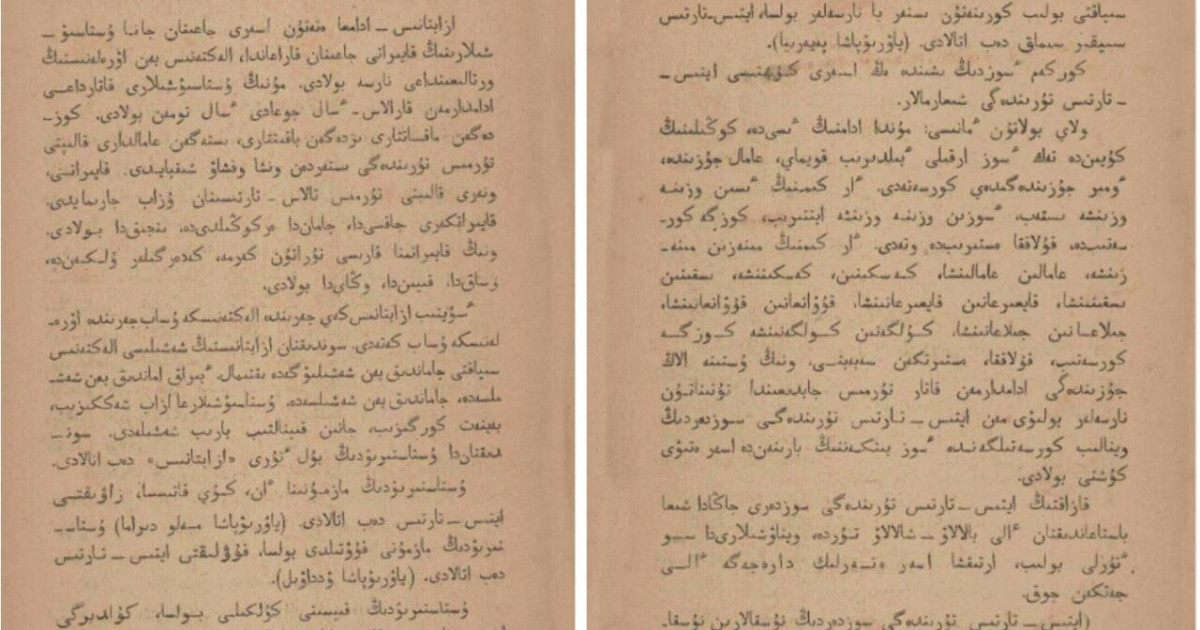 ازاپتانىس ــ ادامعا ەتەتۇن اسەرى جاعىنان جانا ۇستاسىۋ ــ
شىلارىنىڭ قايراتى جاعىنان قاراعاندا، الەكتەنىس پەن اۋرەلەنىستىڭ
ورتالىعىنداعى نارسە بولادى. مۇنىڭ ۇستاسىۋشىلارى قاتارداعى
ادامدارمەن قارالاس ــ ٴسال جوعادى ٴسال تومەن بولادى. كوز ــ
دەگەن ماقساتتارى ىزدەگەن باقىتتارى، ىستەگەن عامالدارى قالىپتى
تۇرمىس تۇرىندەگى ىستەردەن ونشا وقشاۋ شىقپايدى. قايراتى،
ونەرى قالىپتى تۇرمىس تالاس ــ تارتىسىنان ۇزاپ جارىمايدى.
قايراتكەرى جاقسىدا، جاماندا ەركوڭىلدىدە، ىنجىقدا بولادى.
ونىڭ قايراتىنا قارسى تۇراتۇن كەرمە، كەدەرگىلەر ۇلكەندە،
ۇساقدا، قيىندا، وڭايدا بولادى.
ٴسۇيتىپ ازاپتانىس كەي جەرىندە الەكتەنىسكە ۇساپ جەرىندە اۋرە ــ
لەنىسكە ۇساپ كەتەدى. سوندىقتان ازاپتانىستىڭ شەشىلىسى الەكتەنىس
سىياقتى جاماندىق پەن شەشىلىۋگەدە ىقتىمال. ٴبىراق اماندىق پەن شەشى ــ
ملسەدە، جاماندىق پەن شەشىلسەدە. ۇستاسىۋشىلارعا ازاپ شەككىزىپ،
بەينەت كورگىزىپ، جانىن قىينالتىپ بارىپ شەشىلەدى. سونــ
دىقتاندا ۇستاستىرىۋدىڭ بۇل ٴتۇرى «ازاپتانىس» دەپ اتالادى.
ۇستاستىرىۋدىڭ مازمۇنىنا ٴان، كۇي قاتىسسا، زاۋىقتى
ايتىس ــ تارتىس دەپ اتالادى. (ياۋرىۋپاشا مەلو دىراما) ۇستاســ
تىرىۋدىڭ مازمۇنى قۇۋتىلدى بولسا، قۇۋلىقتى ايتىس ــ تارتىس
دەپ اتالادى. (ياۋرىۋپاشا ۋدداۋىل).
ۇستاستىرىۋدىڭ قىيسىنى كۇلكىلى بولسا، كۇلدىرگى
سىياقتى بولىپ كورىنەتۇن ىستەر يا نارسەلەر بولسا، ايتىس ــ تارتىس
سىيقىر سىماق دەپ اتالادى. (ياۋرىۋپاشا پەيەرىيا).
كوركەم ٴسوزدىڭ ىشىندە ەڭ اسەرى كۇشتىسى ايتىس ــ
ــ تارتىس تۇرىندەگى شىعارمالار.
ولاي بولاتۇن ٴمانىسى: مۇندا ادامنىڭ ٴىسىدە، كوڭىلىنىڭ
كۇيىندە تەك ٴسوز ارقىلى ٴبىلدىرىپ قويماي، عامال جۇزىندە،
ٴومىر جۇزىندەگىدەي كورسەتەدى. ٴار كىمنىڭ ٴىسىن وزىنە
وزىنشە ىستەپ، ٴسوزىن وزىنە وزىنشە ايتتىرىپ، كوزگە كورــ
سەتىپدە، قۇلاققا ەستىرىپدە وتەدى. ٴار كىمنىڭ مىنەزىن مىنەــ
زىنشە، عامالىن عامالىنشا، كەسكىنىن، كەسكىنىنشە، ىسقىنىن
ىسقىنىنشا، قايعىرعانىن قايعىرعانىنشا، قۇۋانعانىن قۇۋانعانىنشا،
جىلاعانىن جىلاعانىنشا، كۇلگەنىن كۇلگەنىنشە كوزگە
كورسەتىپ، قۇلاققا، ەستىرتكەن سەبەپتى. ونىڭ ۇستىنە الاڭ
جۇزىندەگى ادامدارمەن قاتار تۇرمىس جابدىعىندا تۇتىناتۇن
نارسەلەر بولىۋى مەن ايتىس ــ تارتىس تۇرىندەگى سوزدەردىڭ
ويىنالىپ كورسەتىلگەندە ٴسوز بىتكەننىڭ بارىنەندە اسەر ەتىۋى
كۇشتى بولادى.
قازاقتىڭ ايتىس ــ تارتىس تۇرىندەگى سوزدەرى جاڭادا شىعا
باستاعاندىقتان ٴالى بالالاۋ ــ شالالاۋ تۇردە، ويناۋشىلارىدا ــ سو
ٴتۇرلى بولىپ، ارتىقشا اسەر ەتەرلىك دارەجەگە ٴالى
جەتكەن جوق.
(ايتىس ــ تارتىس تۇرىندەگى سوزدەردىڭ نۇسقالارىن نۇسقاــ